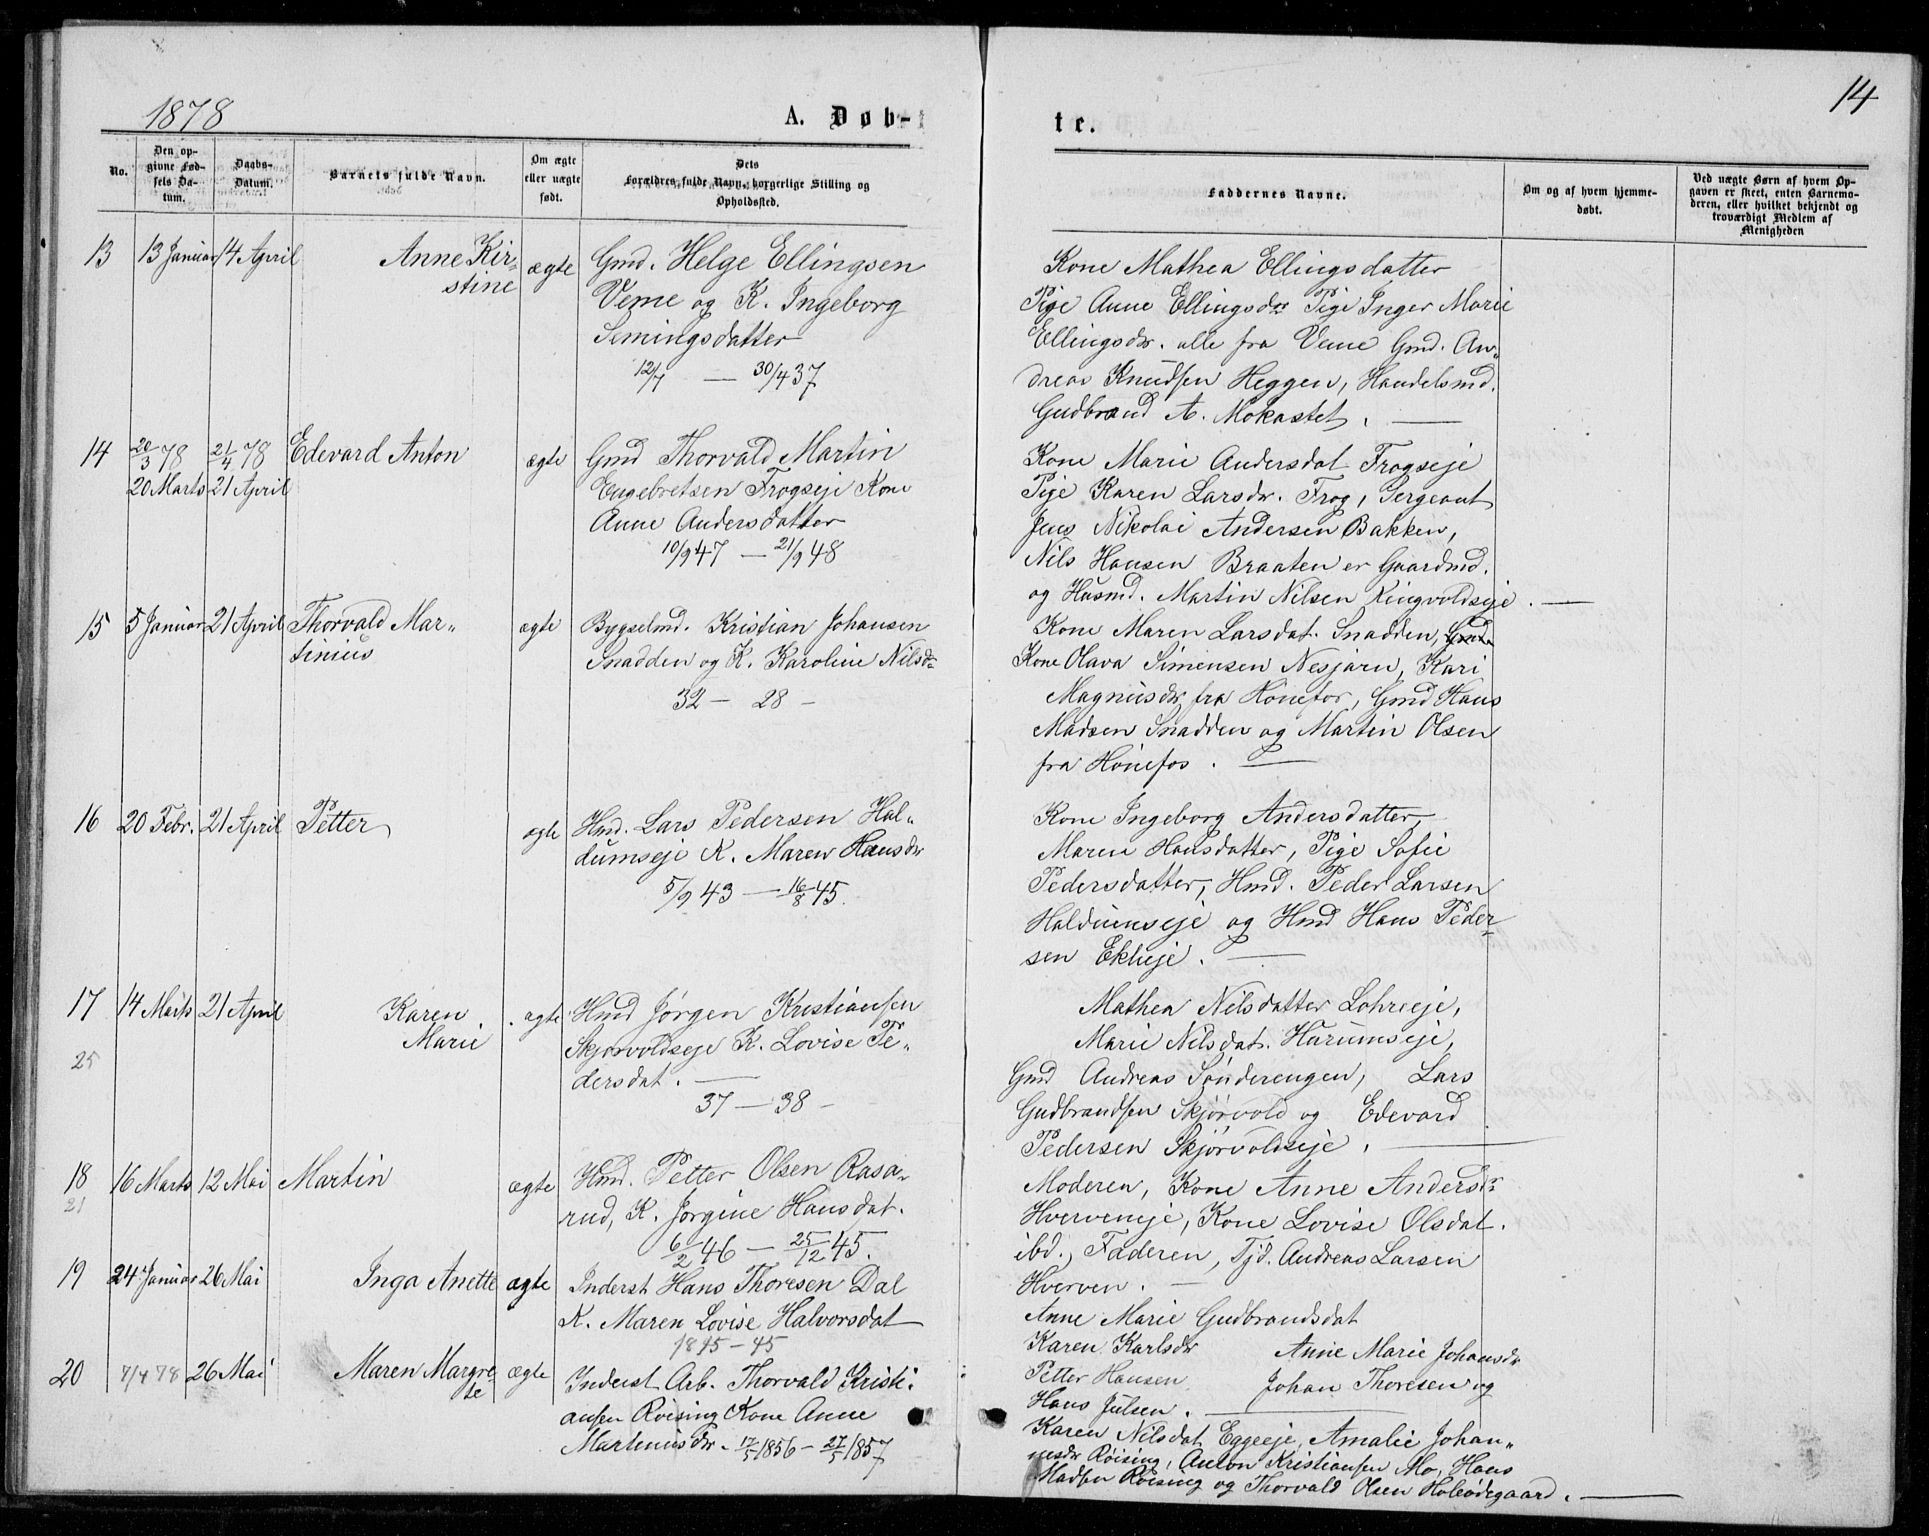 1878
A. Døb-
te.
14
No.
Den op-
givne Fød-
sels Da-
tum.
Daabs-
Datum.
Barnets fulde Navn.
Om ægte
eller uægte
født.
Dets
Forældres fulde Navn, borgerlige Stilling og
Opholdssted.
Faddernes Navne.
Om og af hvem hjemme-
døbt.
Ved uægte Børn af hvem Op-
gaven er skeet, enten Barnemo-
deren, eller hvilket bekjendt og
troværdigt Medlem af
Menigheden
13 13 Januar 14 April Anne Kir-
stine
ægte
Gmd. Helge Ellingsen
Veme og K. Ingeborg
Semingsdatter
12/7 — 30/4 37
Kone Mathea Ellingsdatter
Pige Anne Ellingsdr Pige Inger Marie
Ellingsdr. alle fra Veme Gmd. An-
dreas Knudsen Heggen, Handelsmd.
Gudbrand A. Mokastet. —
14 20/3 78 21/4 78 Edevard Anton
20 Marts 21 April
ægte
Gmd Thorvald Martin
Engebretsen Frogseje Kone
Anne Andersdatter
10/9 47 — 21/9 48
Kone Marie Andersdat Frogseje
Pige Karen Larsdr. Frog, Sergeant
Jens Nikolai Andersen Bakken,
Nils Hansen Braaten er Gaardmd.
og Husmd. Martin Nilsen Ringvoldseje. —
15 5 Januar 21 April Thorvald Mar-
tinius
ægte
Bygselmd. Kristian Johansen
Snadden og K. Karoline Nilsdr
32 — 28 —
Kone Maren Larsdat. Snadden, Gmd
Kone Olava Simensen Nesjarn, Kari
Magnusdr fra Hönefos, Gmd Hans
Madsen Snadden og Martin Olsen
fra Hönefos. —
16 20 Febr. 21 April Petter
ægte
Hmd. Lars Pedersen Hal-
dumseje K. Maren Hansdr
5/9 43 — 16/8 45.
Kone Ingeborg Andersdatter,
Maren Hansdatter, Pige Sofie
Pedersdatter, Hmd. Peder Larsen
Haldumseje og Hmd Hans Peder-
sen Ekheje. —
17 14 Marts 21 April Karen
Marie
25
ægte
Hmd Jørgen Kristiansen
Skjørvoldseje K. Lovise Pe-
dersdat. —
37 — 38 —
Mathea Nilsdatter Lohreeje,
Marie Nilsdat. Harumseje,
Gmd Andreas Sønderengen, Lars
Gudbrandsen Skjørvold og Edevard
Pedersen Skjørvoldseje. —
18 16 Marts 12 Mai Martin
21
ægte
Hmd. Petter Olsen Rasa-
rud, K. Jørgine Hansdat.
6/2 46 — 25/12 45.
Moderen, Kone Anne Andersdr
Hverveneje, Kone Lovise Olsdat.
ibd., Faderen, Tjd. Andreas Larsen
Hverven. —
19 24 Januar 26 Mai Inga Anette
ægte
Inderst Hans Thoresen Dal
K. Maren Lovise Halvorsdat
1845 — 45
Anne Marie Gudbrandsdat
Karen Karlsdr Anne Marie Johansdr
Petter Hansen Johan Thoresen og
Hans Julsen. —
20 7/4 78 26 Mai Maren Margre
te
ægte
Inderst Arb. Thorvald Kristi-
ansen Roising Kone Anne
Martinusdr. 17/5 1856 — 27/5 1857
Karen Nilsdat Eggeeje, Amalie Johan-
nesdr Röising, Anton Kristiansen Mo, Hans
Madsen Röising og Thorvald OlsenHoleødegaard. —